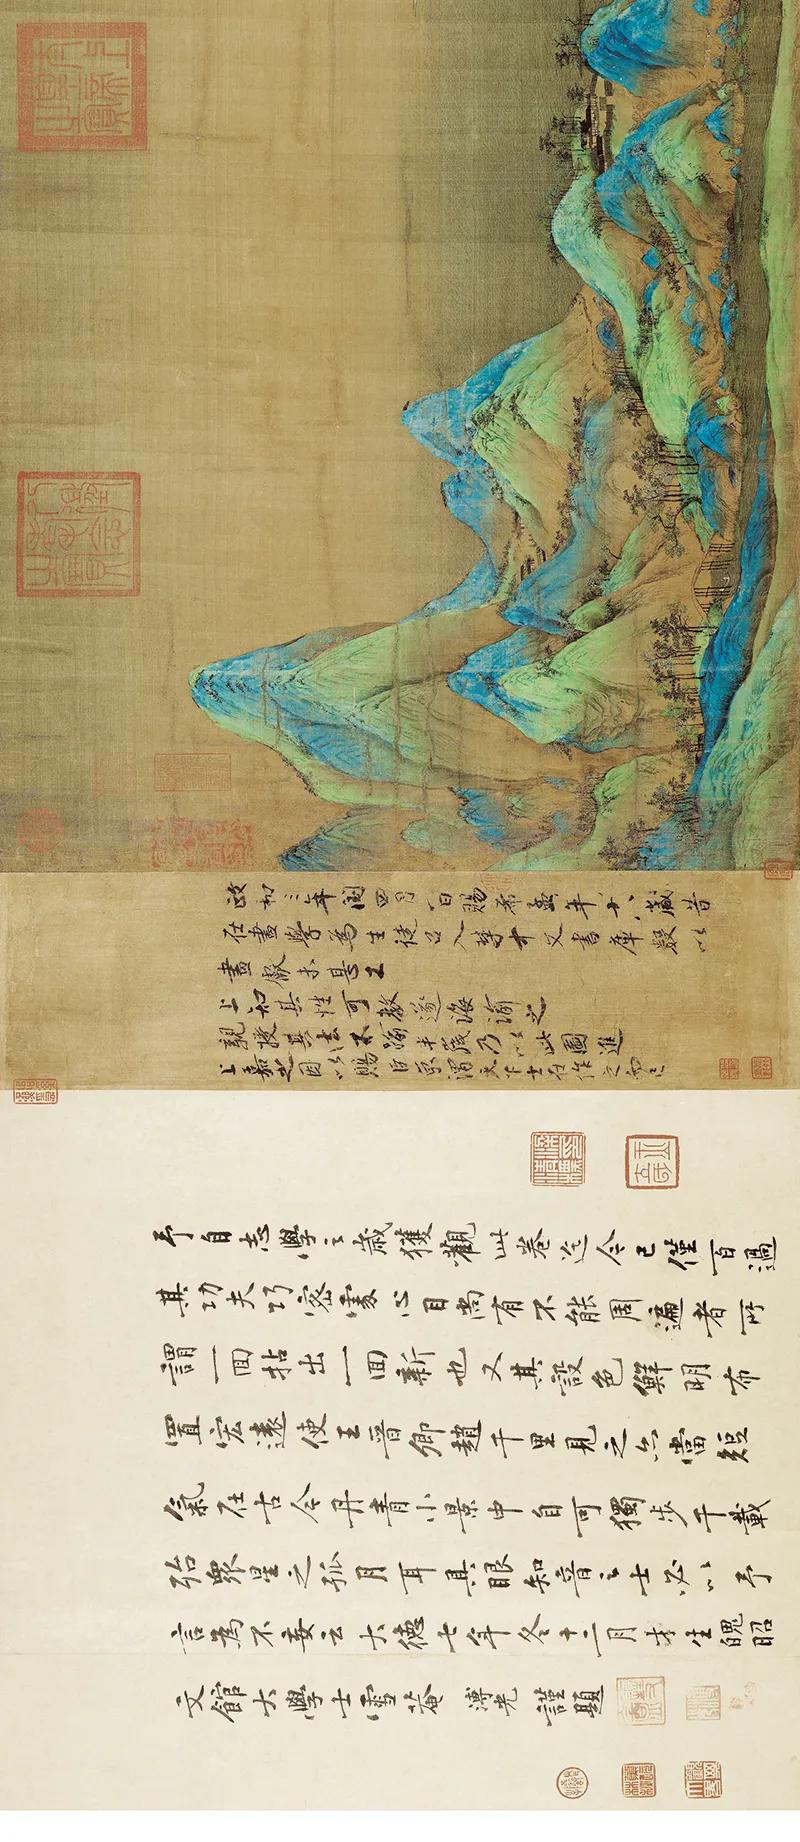 太上皇帝之寶
政和三年閏四月一日賜希孟年十八歲昔
在畫學為生徒召入禁中文書庫數以
畫獻未甚工
上知其性可教遂誨諭之
親授其法不踰半歲乃以此圖進
上嘉之因以賜臣京謂天下士在作之而已
予自志學之歲獲觀此卷迄今已僅百過
其功夫巧密處心目尚有不能周遍者所
謂一回拈出一回新也又其設色鮮明布
置宏遠使王晉卿趙千里見之亦當短
氣在古今丹青小景中自可獨步千載
殆眾星之孤月耳具眼知音之士必以予
言為不妄云大德七年冬十二月才生魄昭
文館大學士雪菴溥光謹題